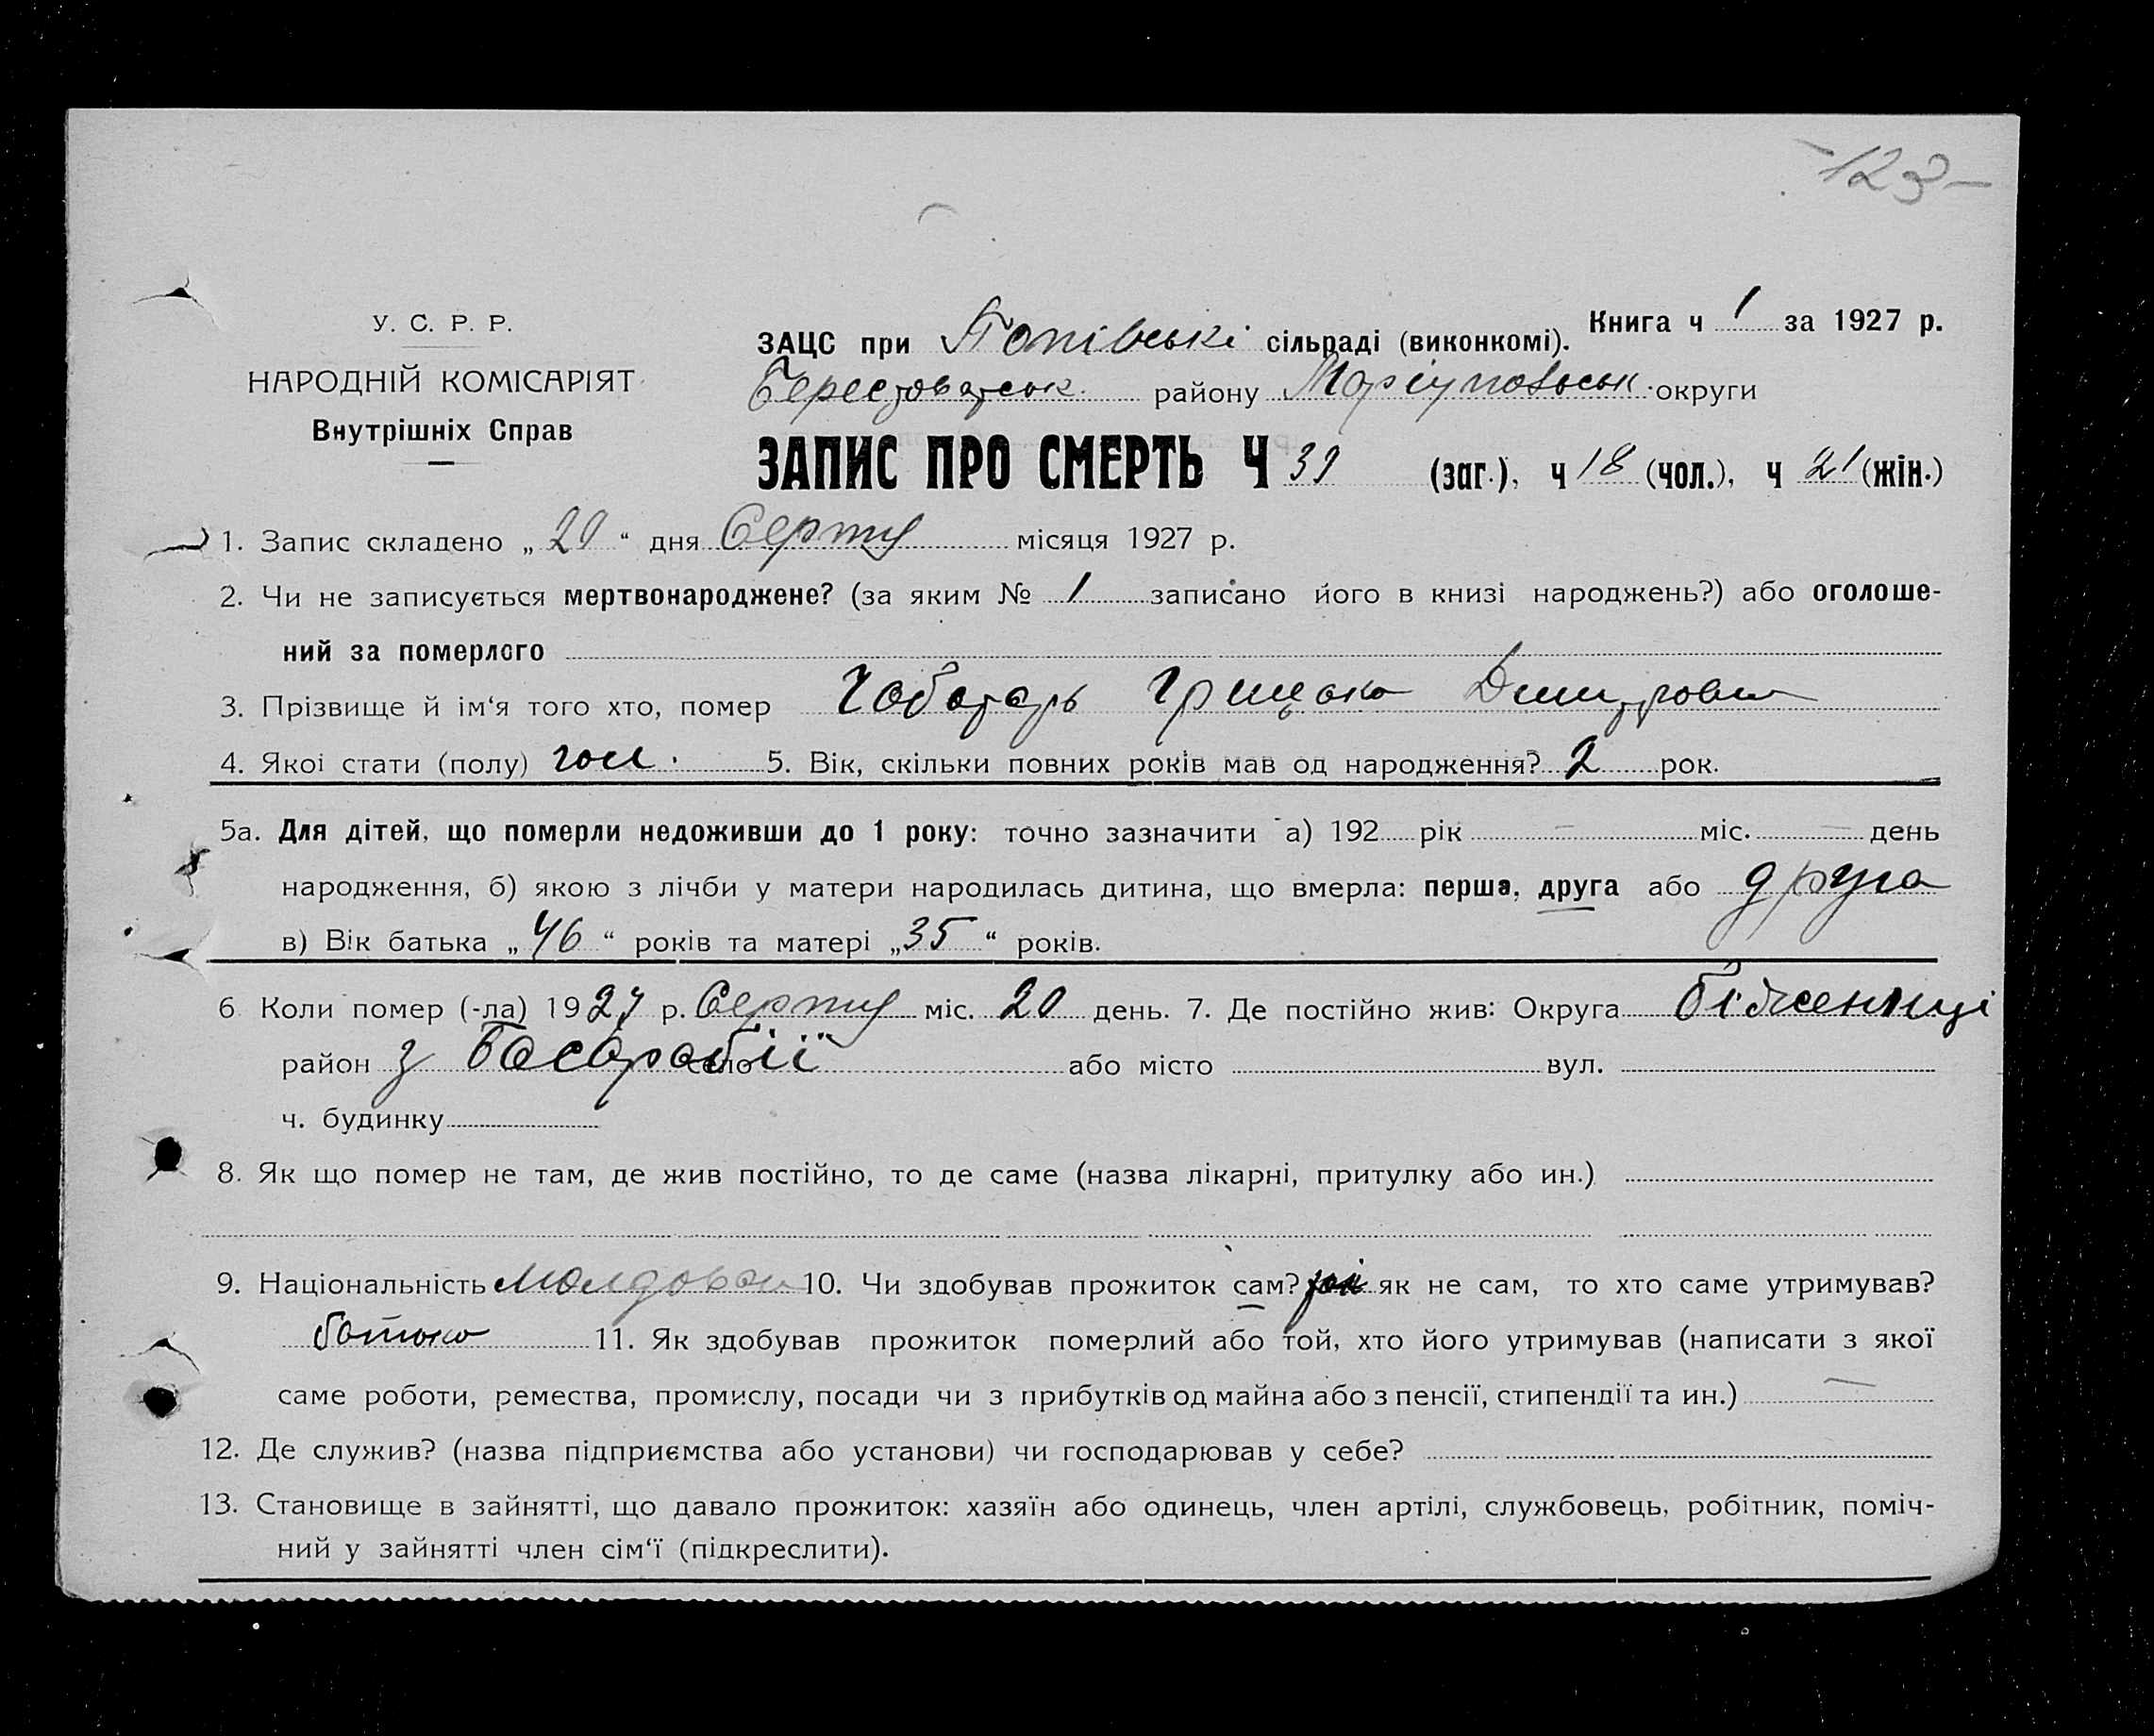 -123-
У. С. Р. Р.
НАРОДНІЙ КОМІСАРІЯТ
Внутрішніх Справ
Книга ч 1 за 1927 р.
ЗАЦС при Попівські сільраді (виконкомі).
Берестоватськ. району Маріупольськ. округи
ЗАПИС ПРО СМЕРТЬ Ч 39 (заг.), ч 18 (чол.), ч 21 (жін.)
1. Запис складено „ 20 “ дня Серпня місяця 1927 р.
2. Чи не записується мертвонароджене? (за яким № 1 записано його в книзі народжень?) або оголоше-
ний за померлого
3. Прізвище й ім‘я того хто, помер Чоботарь Грицько Дмитрович
4. Якоі стати (полу) чол. 5. Вік, скільки повних років мав од народження? 2 рок.
5а. Для дітей, що померли недоживши до 1 року: точно зазначити а) 192 рік — міс. — день
народження, б) якою з лічби у матери народилась дитина, що вмерла: перша, друга або друга
в) Вік батька „ 46 “ років та матері „ 35 “ років.
6 Коли помер (-ла) 1927 р. Серпня міс. 20 день. 7. Де постійно жив: Округа біженнці
район з Басарабії або місто вул.
ч. будинку
8. Як що помер не там, де жив постійно, то де саме (назва лікарні, притулку або ин.)
9. Національність Молдован 10. Чи здобував прожиток сам? як не сам, то хто саме утримував?
батько 11. Як здобував прожиток померлий або той, хто його утримував (написати з якої
саме роботи, ремества, промислу, посади чи з прибутків од майна або з пенсії, стипендії та ин.) —
12. Де служив? (назва підприємства або установи) чи господарював у себе?
13. Становище в зайнятті, що давало прожиток: хазяїн або одинець, член артілі, службовець, робітник, поміч-
ний у зайнятті член сім‘ї (підкреслити).